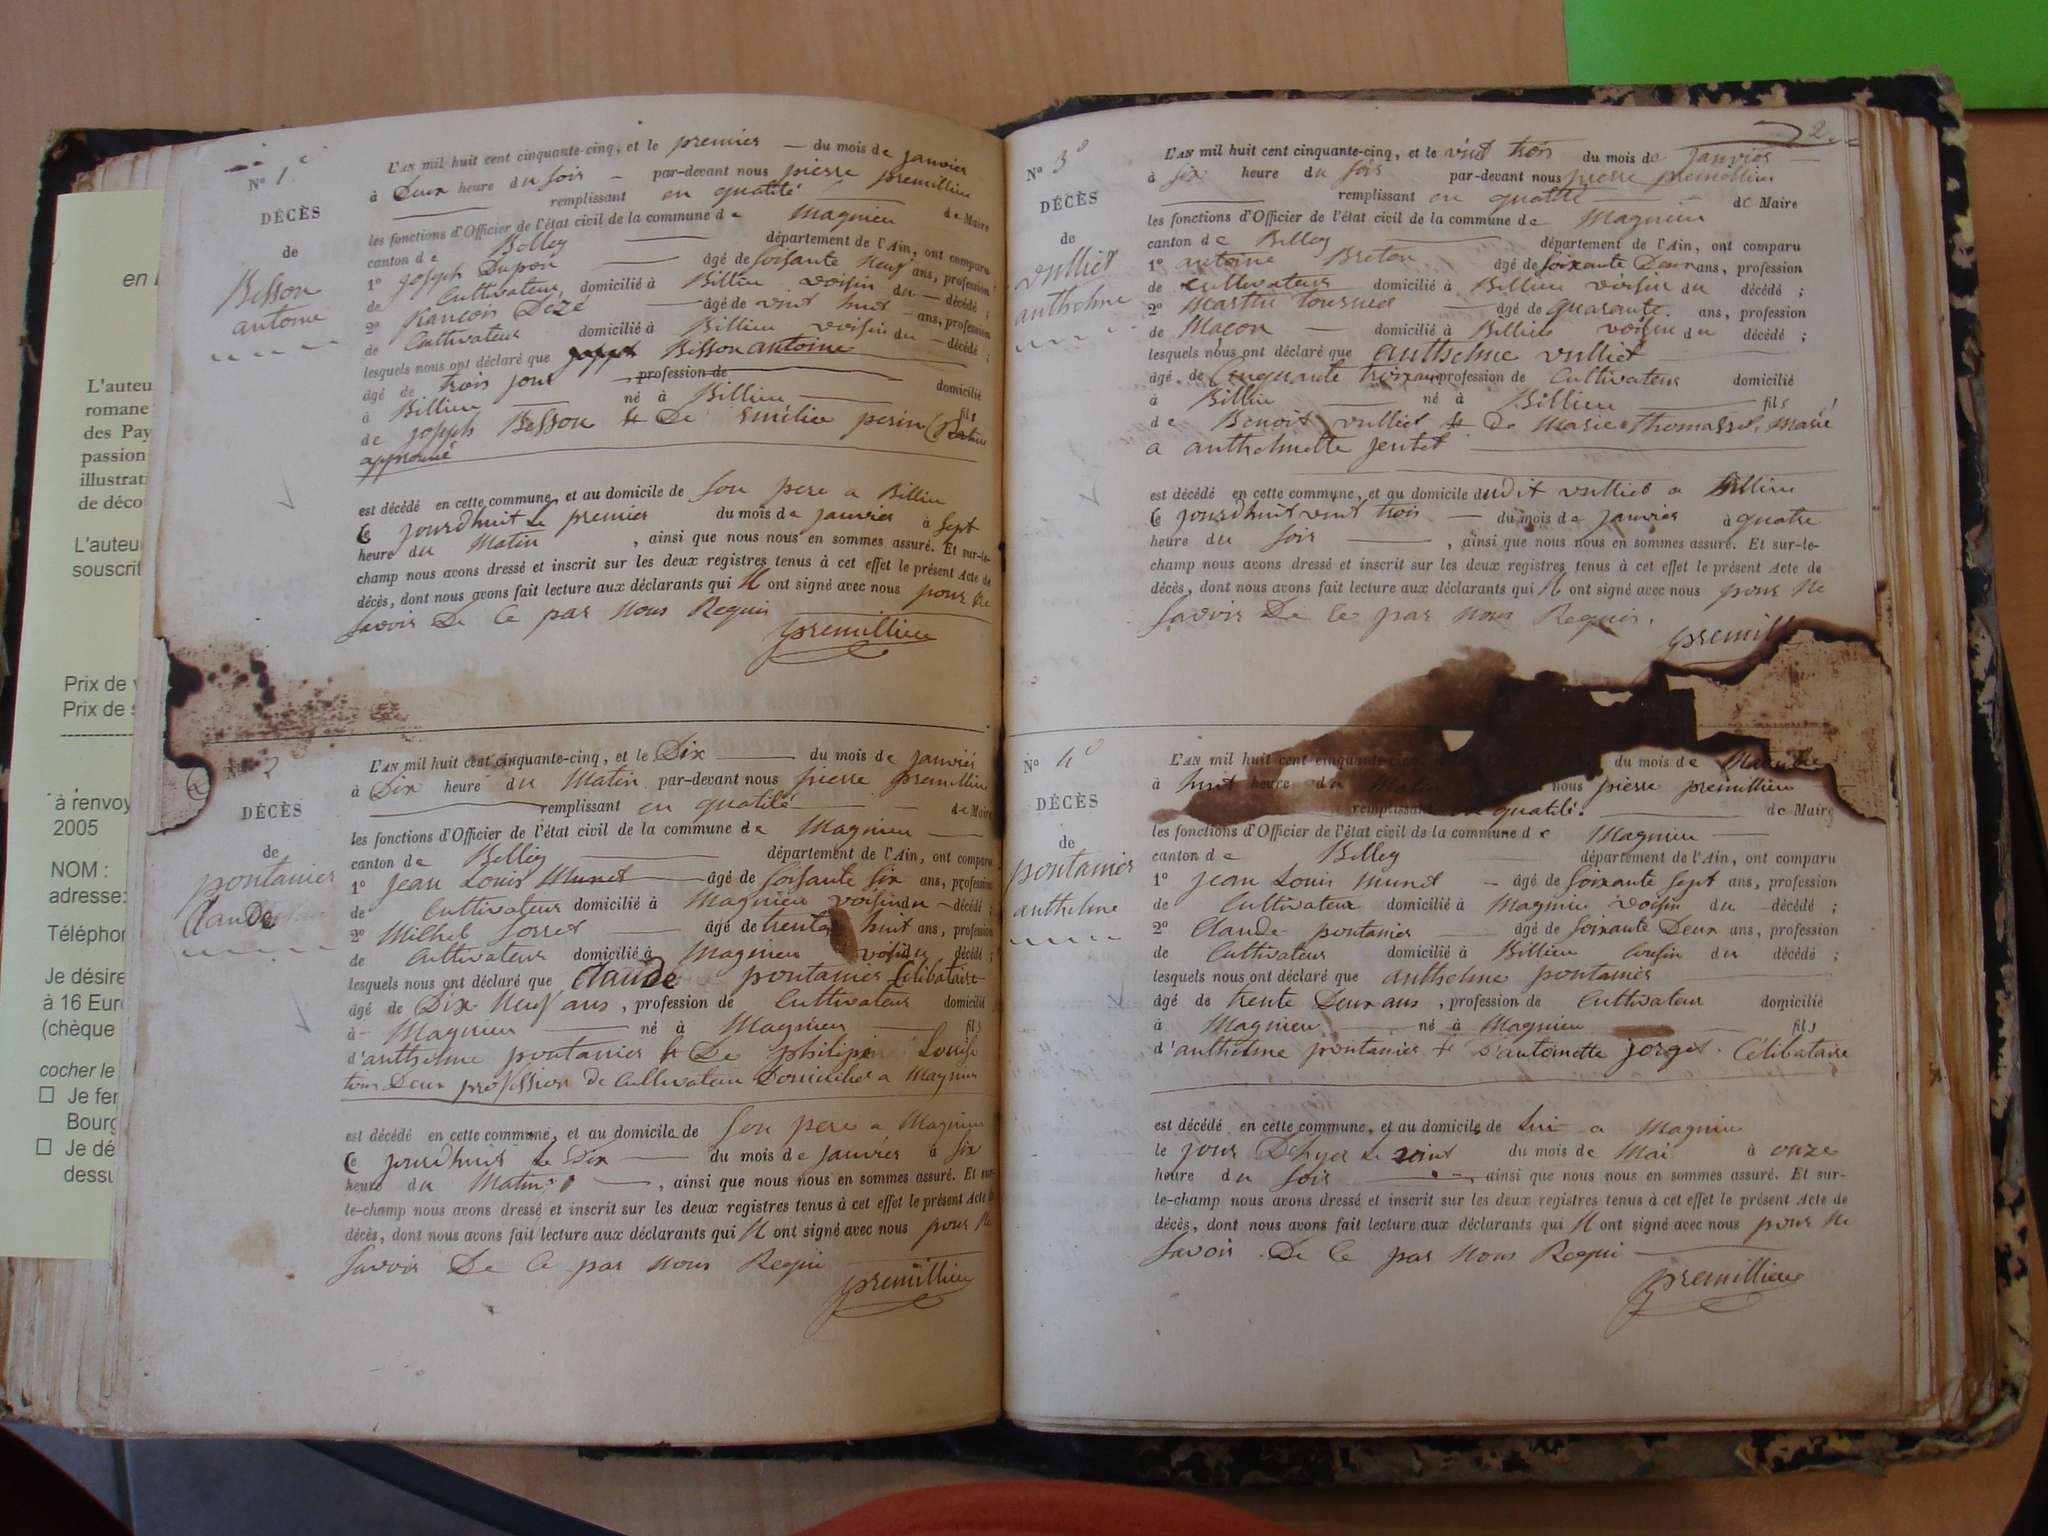 en
L'auteu
romane
des Pay
passion
illustrat
de déco
L'auteu
souscrit
Prix de v
Prix de s
à renvoy
2005
NOM :
adresse:
Téléphor
Je désire
à 16 Eur
(chèque
cocher le
Je fer
Bourg
Je dé
dessu
N° 1
DÉCÈS
de
Bisson
antoine
L'AN mil huit cent cinquante-cinq, et le premier du mois de janvier
à Deux heure du soir par-devant nous pierre premillieu
remplissant en qualité de Maire
les fonctions d'Officier de l'état civil de la commune de Magnieu
canton de Belley département de l'Ain, ont comparu
1° joseph Dupon âgé de soisante neuf ans, profession
de Cultivateur domicilié à Billieu voisin du décédé ;
2° francois Dizé âgé de vint huit ans, profession
de Cultivateur domicilié à Billieu voisin du décédé ;
lesquels nous ont déclaré que Bisson antoine
âgé de trois jour profession de domicilié
à Billieu né à Billieu fils
de joseph Bisson & De Emélie perin
approuvé
est décédé en cette commune, et au domicile de son pere a Billieu
Ce jourdhuit le premier du mois de janvier à sept
heure du Matin , ainsi que nous nous en sommes assuré. Et sur-le-
champ nous avons dressé et inscrit sur les deux registres tenus à cet effet le présent Acte de
décès, dont nous avons fait lecture aux déclarants qui N ont signé avec nous pour ne
savoir De Ce par nous Requis
premillieu
N° 2
DÉCÈS
de
pontanier
Claude
L'AN mil huit cent cinquante-cinq, et le Dix du mois de janvier
à Dix heure du Matin par-devant nous pierre premillieu
remplissant en qualité de Maire
les fonctions d'Officier de l'état civil de la commune de Magnieu
canton de Belley département de l'Ain, ont comparu
1° jean Louis Munet âgé de soisante six ans, profession
de Cultivateur domicilié à Magnieu voisin du décédé ;
2° Milhel Sorret âgé de trente huit ans, profession
de Cultivateur domicilié à Magnieu voisin décédé ;
lesquels nous ont déclaré que Claude pontanier Celibataire
âgé de Dix Neuf ans , profession de Cultivateur domicilié
à Magnieu né à Magnieu fils
d'anthelme pontanier & De Louise
tous Deux profession de Cultivateur Domicilié a Magnieu
est décédé en cette commune, et au domicile de son pere a Magnieu
Ce jourdhuis le Dix du mois de janvier à six
heure du Matin , ainsi que nous nous en sommes assuré. Et sur-
le-champ nous avons dressé et inscrit sur les deux registres tenus à cet effet le présent Acte de
décès, dont nous avons fait lecture aux déclarants qui N ont signé avec nous pour Ne
savoir De Ce par nous Requi
premillieu
2
N° 3°
DÉCÈS
de
vulliet
anthelme
L'AN mil huit cent cinquante-cinq, et le vint trois du mois de janvier
à six heure du soir par-devant nous pierre premillieu
remplissant en qualité de Maire
les fonctions d'Officier de l'état civil de la commune de Magnieu
canton de Belley département de l'Ain, ont comparu
1° antoine Breton âgé de soixante Deux ans, profession
de Cultivateur domicilié à Billieu voisin du décédé ;
2° Marthe Tournier âgé de quarante ans, profession
de Maçon domicilié à Billieu voisin du décédé ;
lesquels nous ont déclaré que anthelme vulliet
âgé de Cinquante trois ans profession de Cultivateur domicilié
à Billieu né à Billieu fils
de Benoit vulliet & De Marie thomasset, marié
a anthelmette jentet
est décédé en cette commune, et au domicile dudit vulliet a Billieu
Ce jourdhuit vint trois du mois de janvier à quatre
heure du soir , ainsi que nous nous en sommes assuré. Et sur-le-
champ nous avons dressé et inscrit sur les deux registres tenus à cet effet le présent Acte de
décès, dont nous avons fait lecture aux déclarants qui N ont signé avec nous pour Ne
savoir De Ce par nous Requis.
premill
N° 4°
DÉCÈS
de
pontanier
anthelme
L'AN mil huit cent cinquante-cinq du mois de
à huit heure du Matin nous pierre premillieu
remplissant qualité. de Maire
les fonctions d'Officier de l'état civil de la commune de Magnieu
canton de Belley département de l'Ain, ont comparu
1° jean Louis Munet âgé de soixante sept ans, profession
de Cultivateur domicilié à Magnieu voisin du décédé ;
2° Claude pontanier âgé de soixante Deux ans, profession
de Cultivateur domicilié à Billieu cousin du décédé ;
lesquels nous ont déclaré que anthelme pontanier
âgé de trente Deux ans , profession de Cultivateur domicilié
à Magnieu né à Magnieu fils
d'anthelme pontanier & D'antoinette jorget. Célibataire
est décédé en cette commune, et au domicile de lui a Magnieu
le jour D'hyer le vint du mois de Mai à onze
heure du soir , ainsi que nous nous en sommes assuré. Et sur-
le-champ nous avons dressé et inscrit sur les deux registres tenus à cet effet le présent Acte de
décès, dont nous avons fait lecture aux déclarants qui N ont signé avec nous pour Ne
savoir De Ce par nous Requi
premillieu